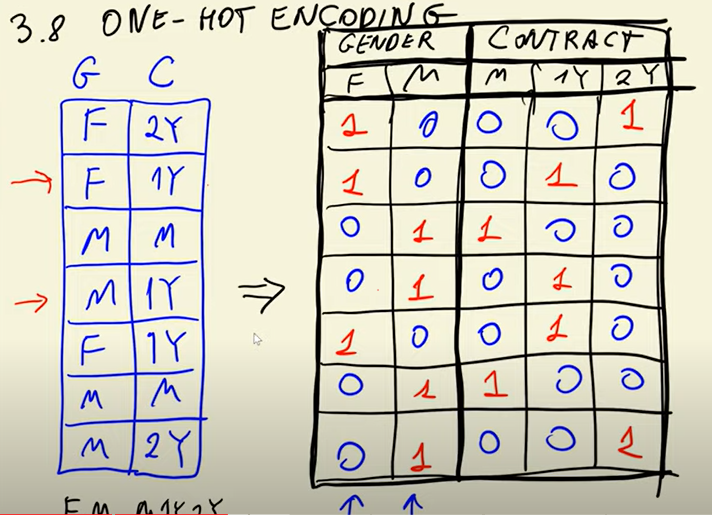 3.8 ONE-HOT ENCODING
G C
F 2Y
F 1Y
M M
M 1Y
F 1Y
M M
M 2Y
GENDER CONTRACT
F M M 1Y 2Y
1 0 0 0 1
1 0 0 1 0
0 1 1 0 0
0 1 0 1 0
1 0 0 1 0
0 1 1 0 0
0 1 0 0 1
F M M 1Y 2Y